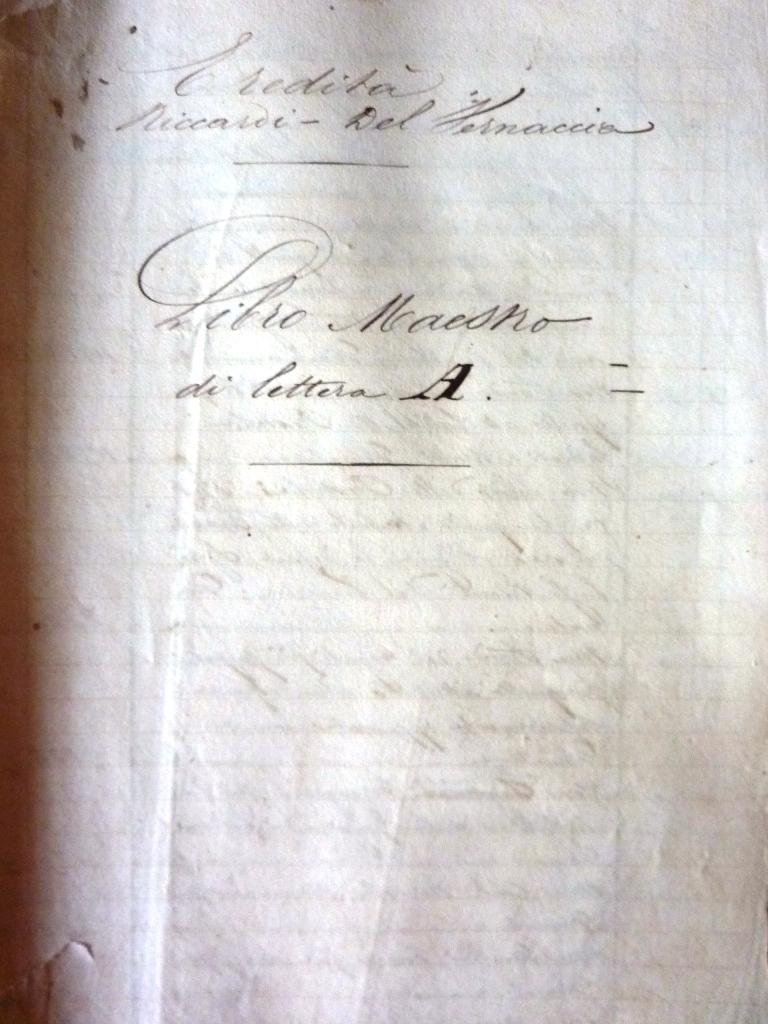 Eredità
Riccardi - Del Vernaccia
Libro Maestro
di lettera A. =